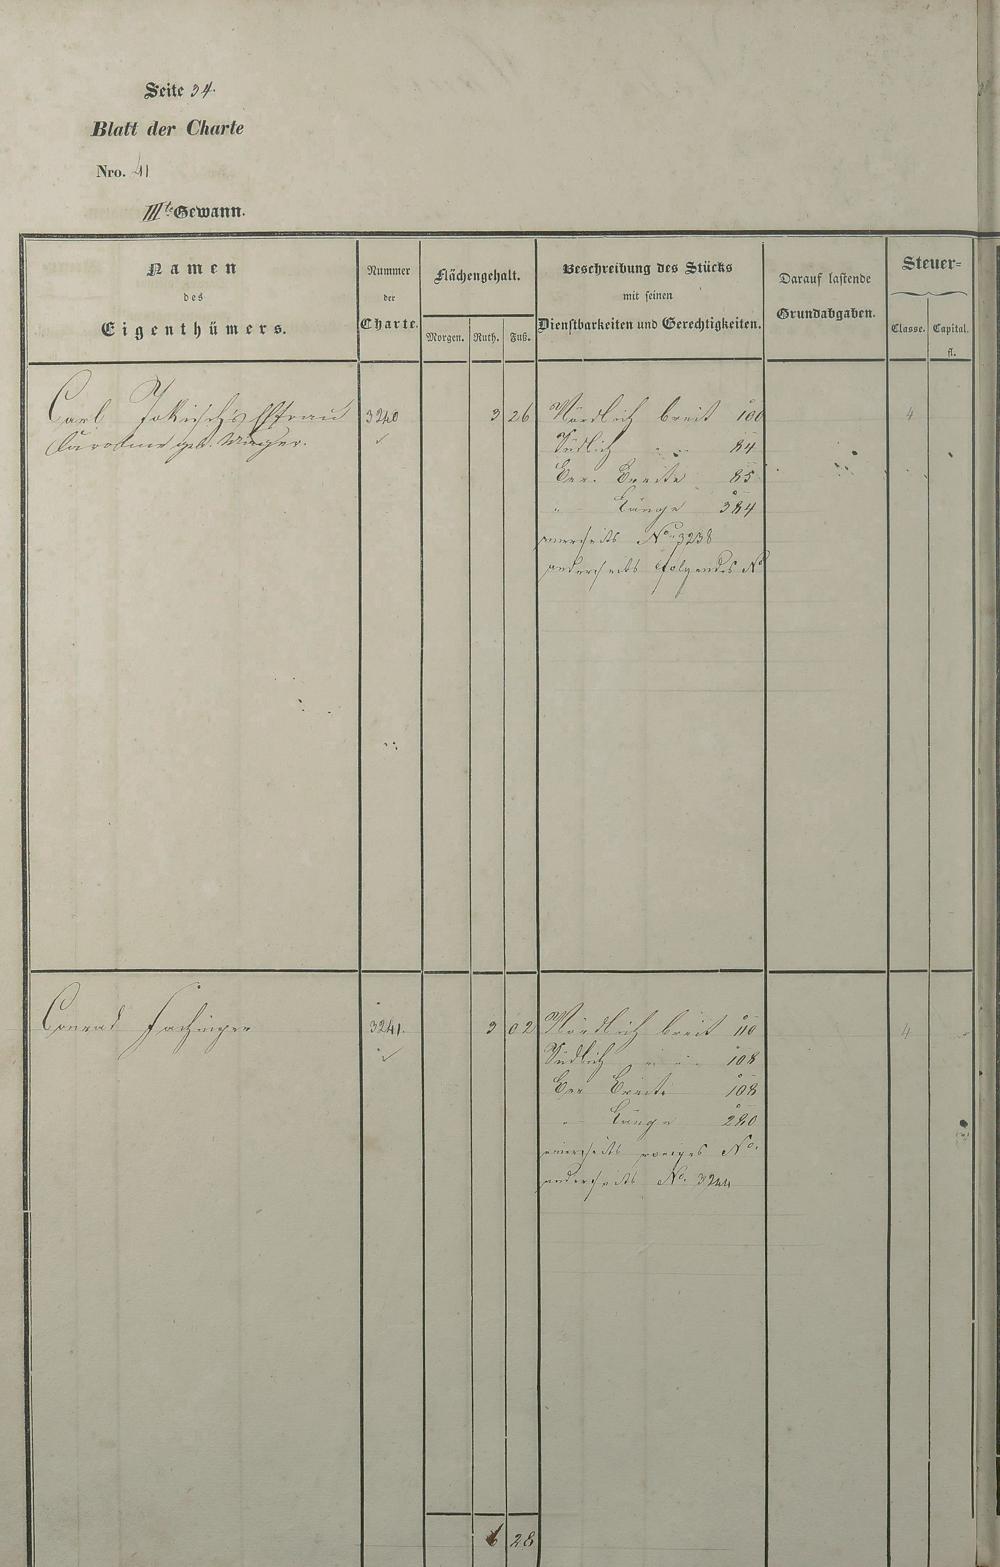 Seite 34.
Blatt der Charte
Nro. 41
IIIte Gewann.
Namen
des
Eigenthümers.
Nummer
der
Charte.
Flächengehalt.
Morgen. Ruth. Fuß.
Beschreibung des Stücks
mit seinen
Dienstbarkeiten und Gerechtigkeiten.
Darauf lastende
Grundabgaben.
Steuer=
Classe. Capital.
fl.
Carl Jokisch's Ehfrau 3240 3 26 Nördlich breit 100 4
Caroline geb. Südlich " " 84
Ber. Breite 85
" Länge 384
einerseits No. 3238
anderseits folgendes No
Conrad Hachinger 3241. 3 02 Nördlich breit 110 4
Südlich " " 108
Ber Breite 108
" Länge 280
einerseits voriges No.
anderseits No. 3244
6 28